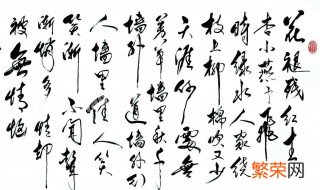 花褪残红青
杏小燕子飛
時绿水人家绕
枝上柳棉吹又少
天涯何處無
芳草墙里秋千
墙外道墙外行
人墙里佳人笑
笑渐不闻聲
渐悄多情却
被無情惱
繁荣网